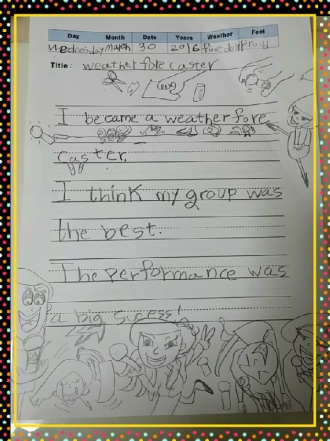 Day Month Date Years Weather Feel
Wednesday March 30 2016 fine dust
Title : weather fore caster
I became a weather fore
caster.
I think my group was
the best.
The performance was
a big sucess!